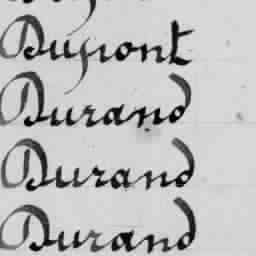 Dupont
Durand
Durand
Durand